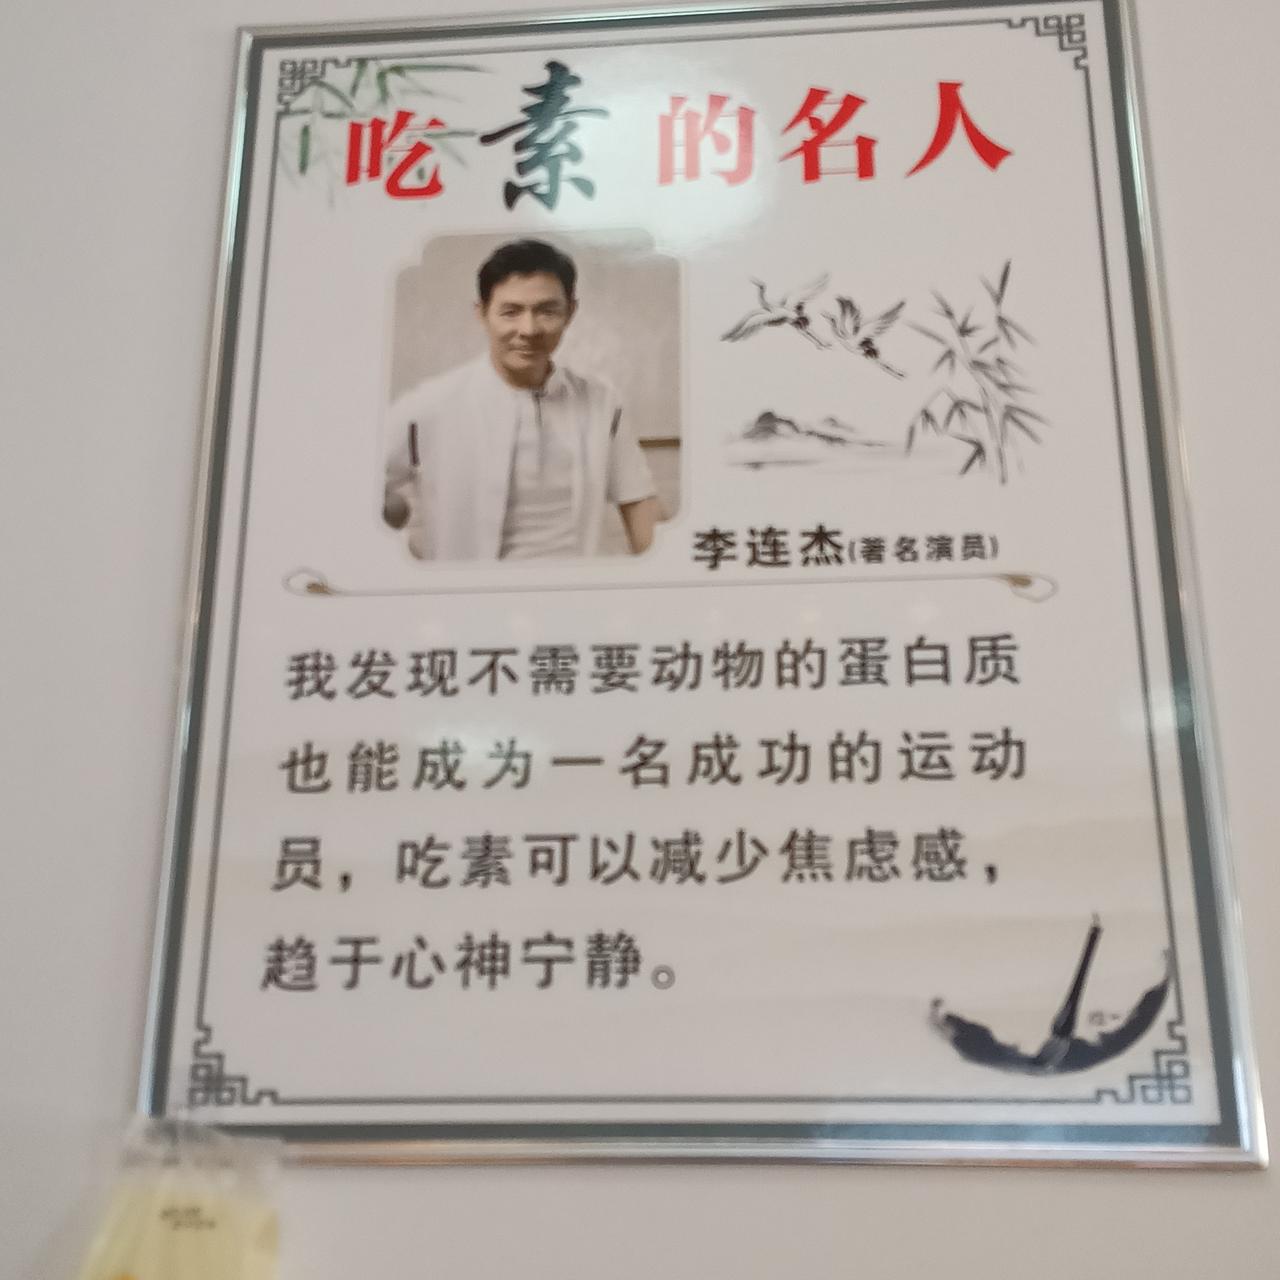 吃素的名人
李连杰(著名演员)
我发现不需要动物的蛋白质
也能成为一名成功的运动
员，吃素可以减少焦虑感，
趋于心神宁静。